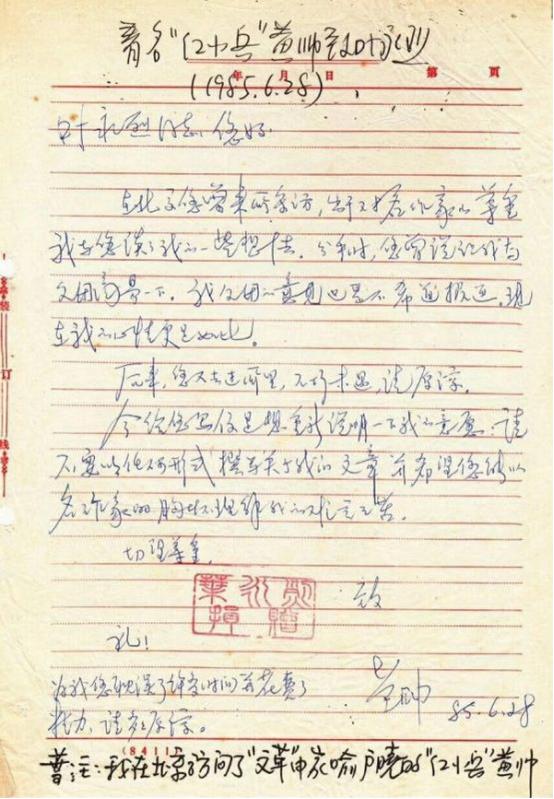 着名“红小兵”黄帅致叶永烈
年 月 日 第 页
(1985.6.28)
叶永烈同志：您好！
在北京您曾来所采访，出于对名作家的尊重
我与您谈了我的一些想法。分手时，您曾说让我与
父母商量一下。我父母的意见也是不希望报道。现
在我的心情更是如此。
后来，您又去过所里，不巧未遇，请原谅。
今给您写信是想重新说明一下我的意愿：请
不要以任何形式撰写关于我的文章并希望您能以
名作家的胸怀理解我的难言之苦。
切望尊重。
致
礼！
叶永烈赠
黄帅
为我您耽误了许多时间并花费了
精力，请多原谅。
85.6.28
装 订 线
(8411)
普注：我在北京访问了“文革”中家喻户晓的“红小兵”黄帅